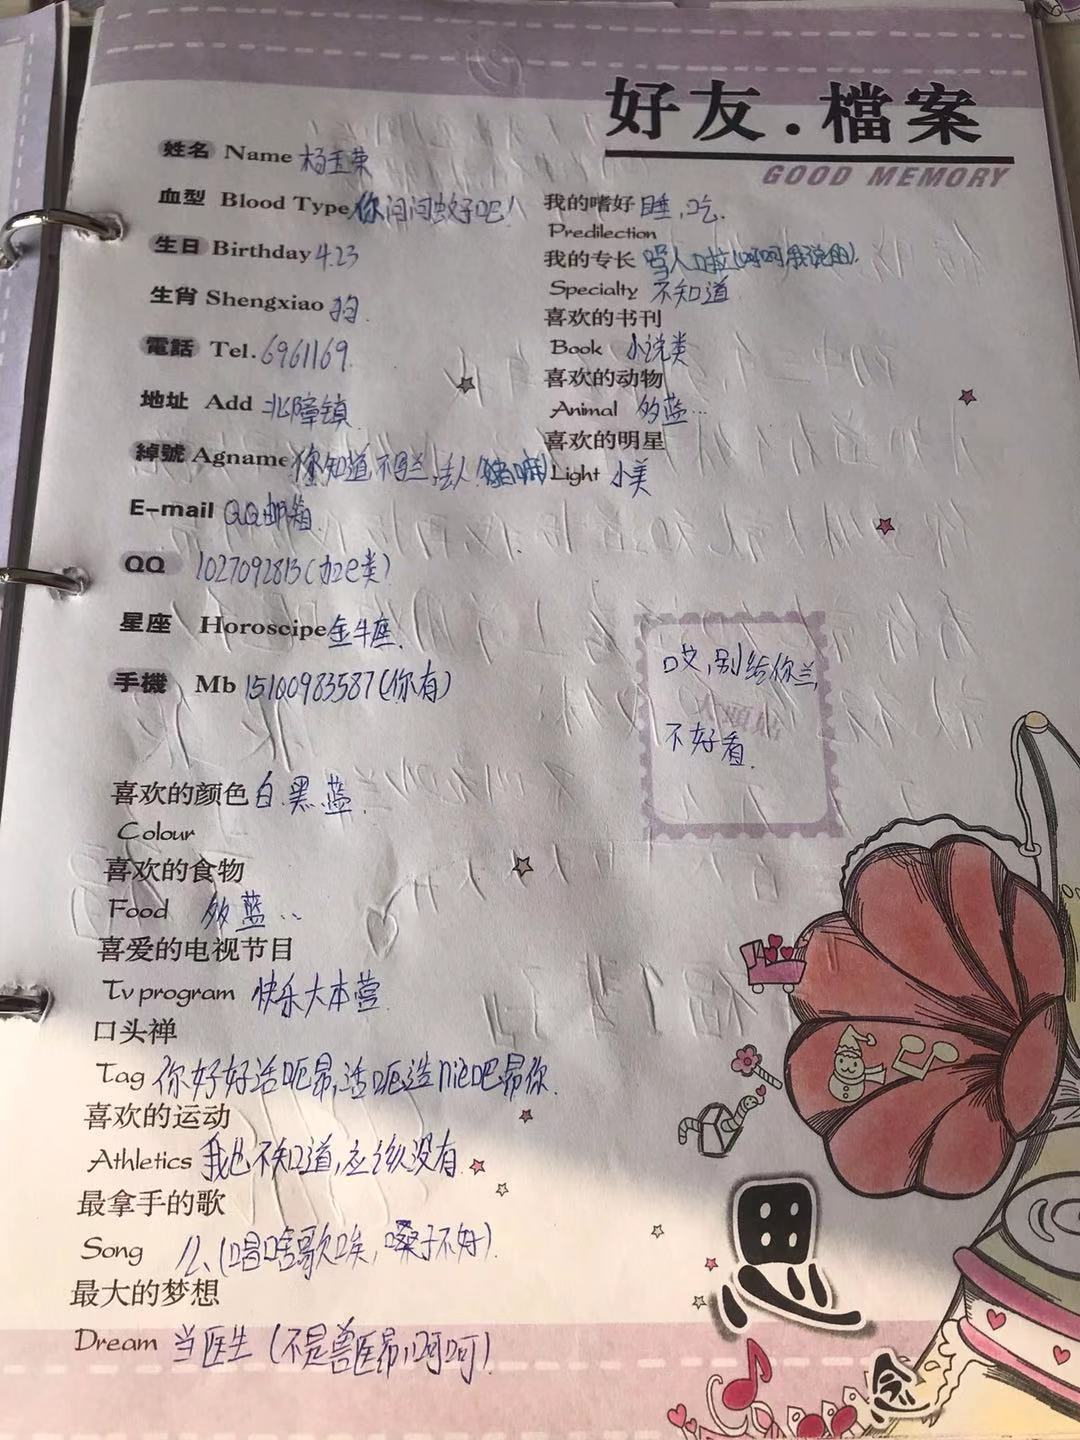 好友.檔案
GOOD MEMORY
姓名 Name 杨玉荣
血型 Blood Type 你问问蚊子吧!
生日 Birthday 4.23
生肖 Shengxiao 狗.
電話 Tel. 6961169.
地址 Add 北障镇
綽號 Agname 你知道,不写兰,丢人!
E-mail QQ邮箱.
QQ 1027092813(加e类)
星座 Horoscipe 金牛座.
手機 Mb 15100983587(你有)
我的嗜好 睡,吃.
Predilection
我的专长 骂人口拉(呵呵我说的).
Specialty 不知道
喜欢的书刊
Book 小说类
喜欢的动物
Animal 多蓝…
喜欢的明星
Light 小美
哎,别给你兰,
大頭貼
不好看.
喜欢的颜色 白.黑.蓝.
Colour
喜欢的食物
Food 多蓝..
喜爱的电视节目
Tv program 快乐大本营.
口头禅
Tag 你好好活呃昂,活呃造nie吧昂你.
喜欢的运动
Athletics 我也不知道,应该没有.
最拿手的歌
Song 么(唱啥歌唉,嗓子不好).
最大的梦想
Dream 当医生(不是兽医昂,呵呵)
思
念